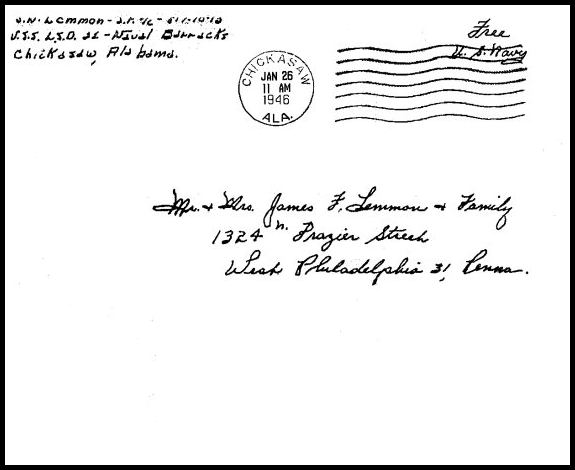 U.S.S. L.S.D. 22 - Naval Barracks
Chickasaw, Alabama.
Free
U.S. Navy
CHICKASAW
JAN 26
11 AM
1946
ALA.
Mr. + Mrs. James F. Lemmon + Family
1324 N. Frazier Street
West Philadelphia 31, Penna.